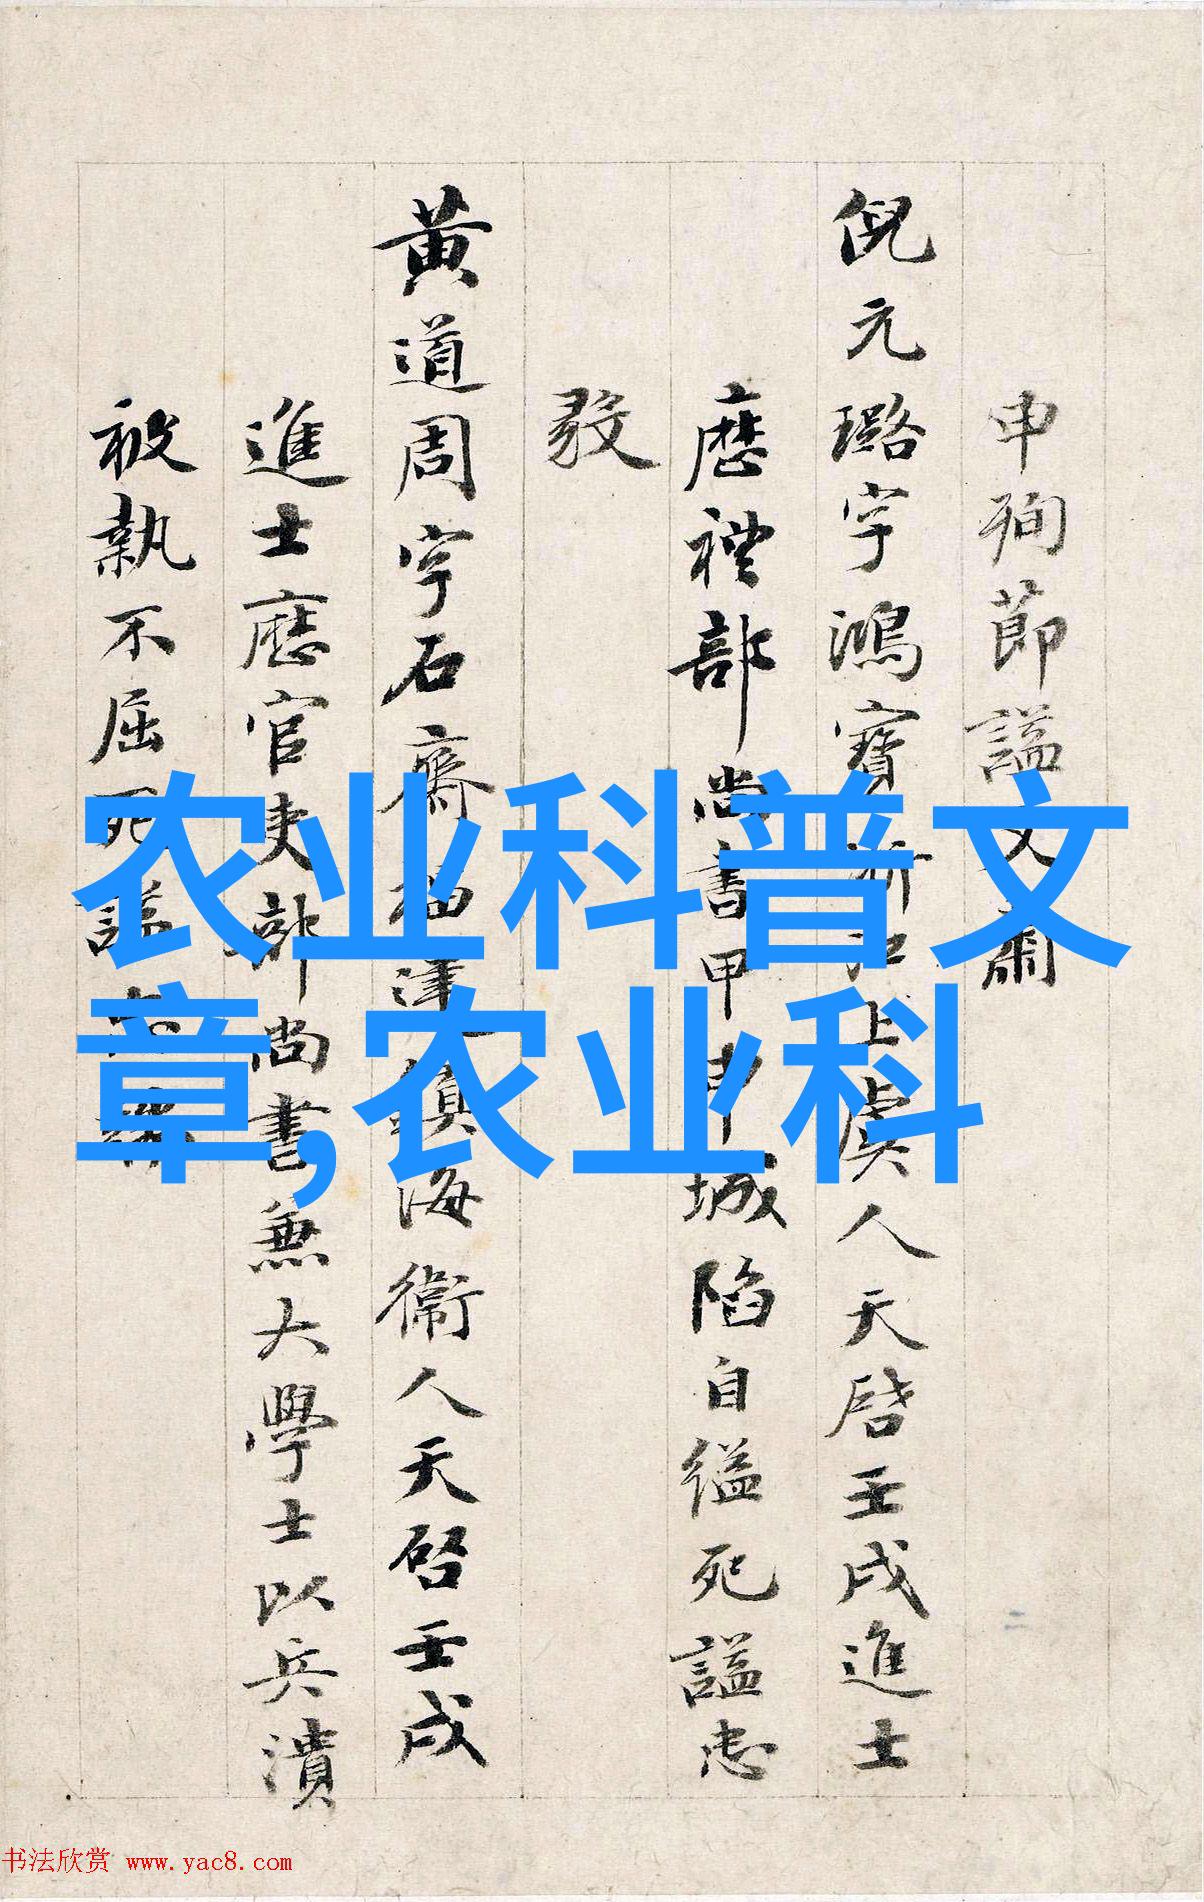 申殉節諡文肅
倪元璐字鴻寶浙江上虞人天啓壬戌進士
歷禮部尚書甲申城陷自縊死諡忠
毅
黄道周字石齋福建鎮海衞人天啓壬戌
進士歷官吏部尚書兼大學士以兵潰
被執不屈死諡
农业科普文
章,农业科
书法欣赏 www.yac8.com